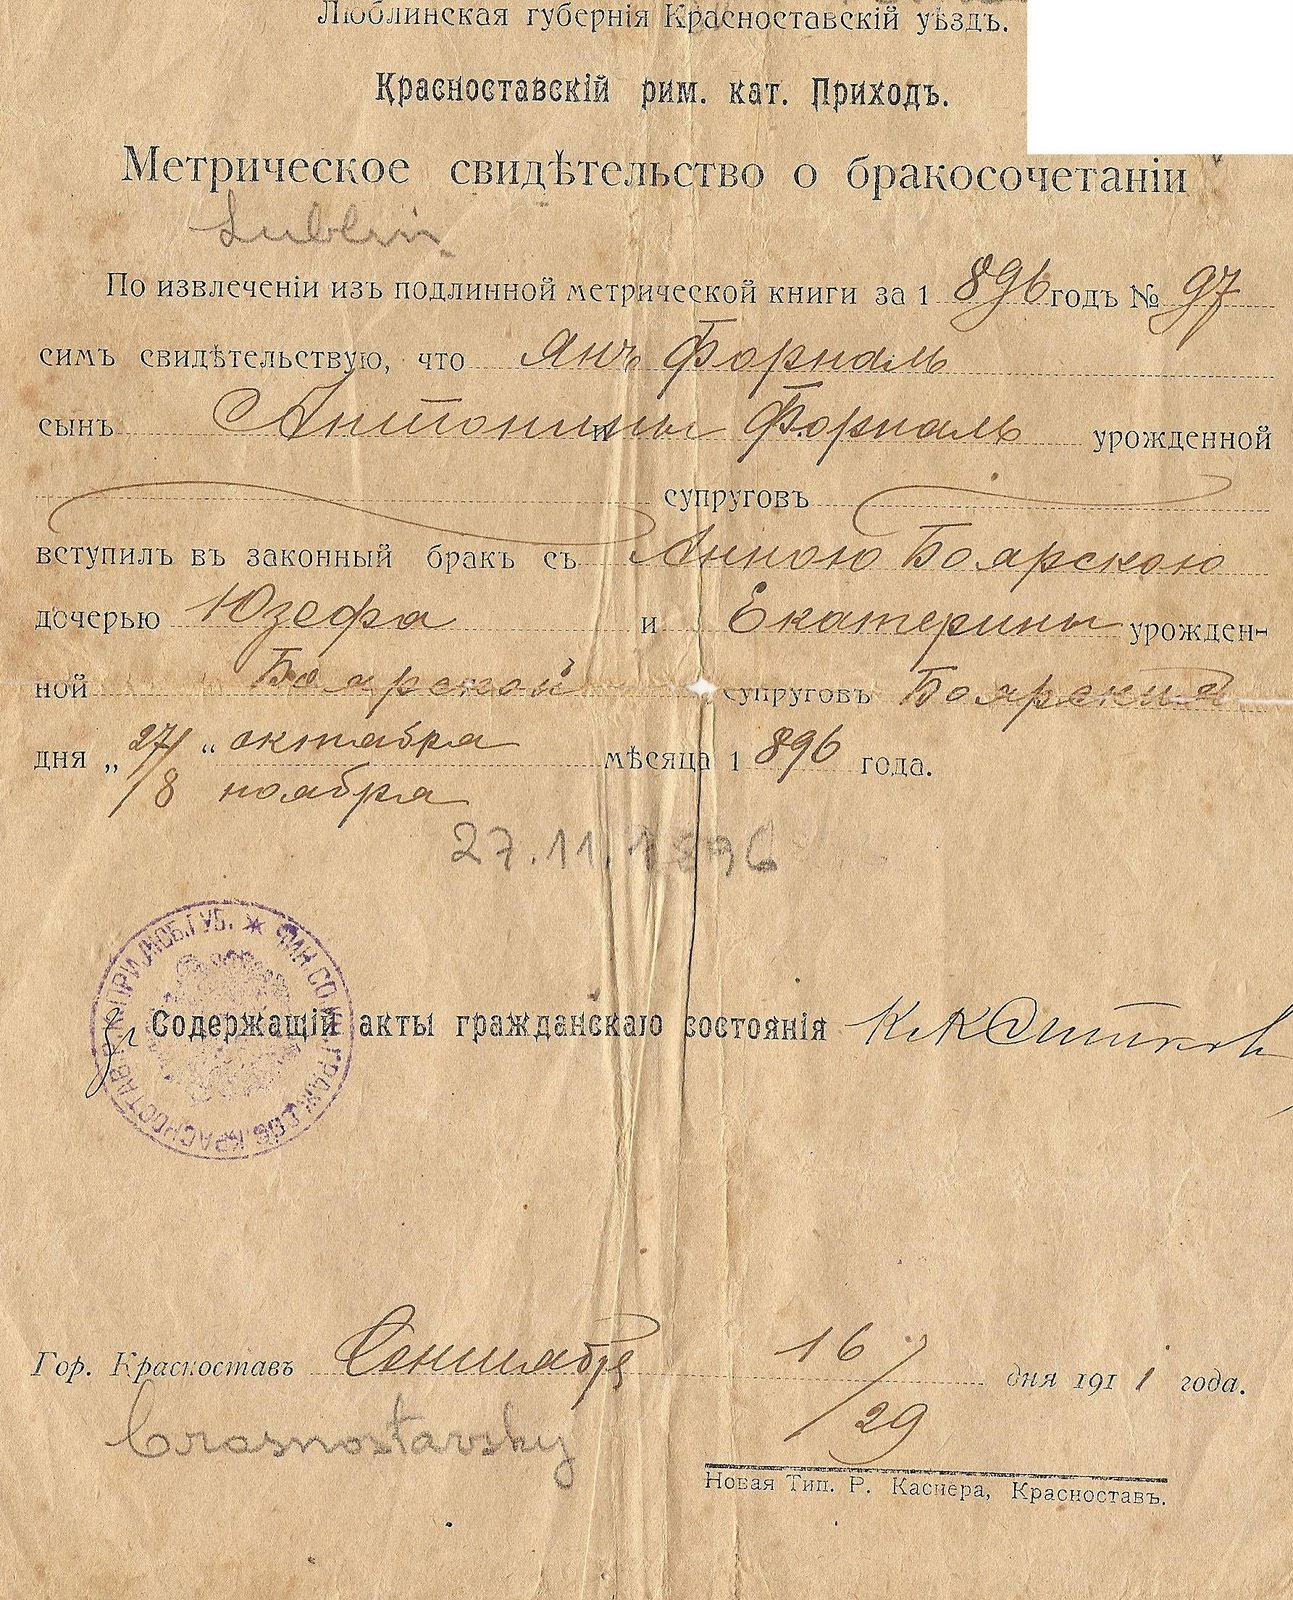 Люблинская губернія Красноставскій уѣздъ.
Красноставскій рим. кат. Приходъ.
Метрическое свидѣтельство о бракосочетаніи
Lublin
По извлеченіи изъ подлинной метрической книги за 1896 годъ № 97
симъ свидѣтельствую, что Янъ Форналь
сынъ Антонины и Форналь урожденной
супруговъ
вступилъ въ законный бракъ съ Анною Боярскою
дочерью Юзефа и Екатерины урожден-
ной Боярской супруговъ Боярских
дня „27/8 „ октября мѣсяца 1896 года.
ноября
27.11.1896
КРАСНОСТАВ. ПРИ. ЛЮБ. ГУБ. * ЧИН. СО. АК. ГРАЖ. СОС.
Содержащій акты гражданскаго состоянія
Гор. Красноставъ Сентября 16/29 дня 1911 года.
Crasnostavsky
Новая Тип. Р. Каснера, Красноставъ.